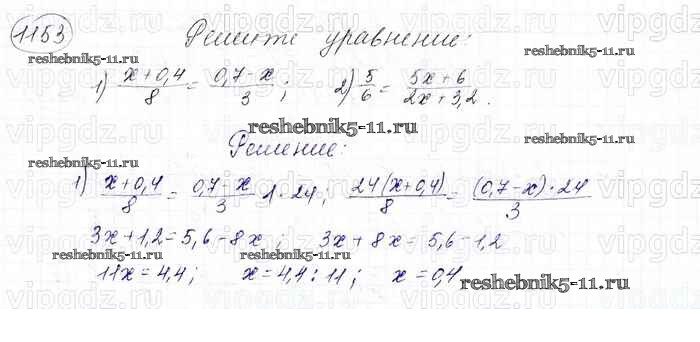 1153 Решите уравнение:
1) (x+0,4)/8 = (0,7-x)/3; 2) 5/6 = (5x+6)/(2x+3,2).
Решение:
1) (x+0,4)/8 = (0,7-x)/3 | · 24; 24(x+0,4)/8 = (0,7-x)·24/3
3x+1,2=5,6-8x; 3x+8x=5,6-1,2
11x=4,4; x=4,4:11; x=0,4
reshebnik5-11.ru
reshebnik5-11.ru
reshebnik5-11.ru
reshebnik5-11.ru
reshebnik5-11.ru
reshebnik5-11.ru
reshebnik5-11.ru
vipgdz.ru